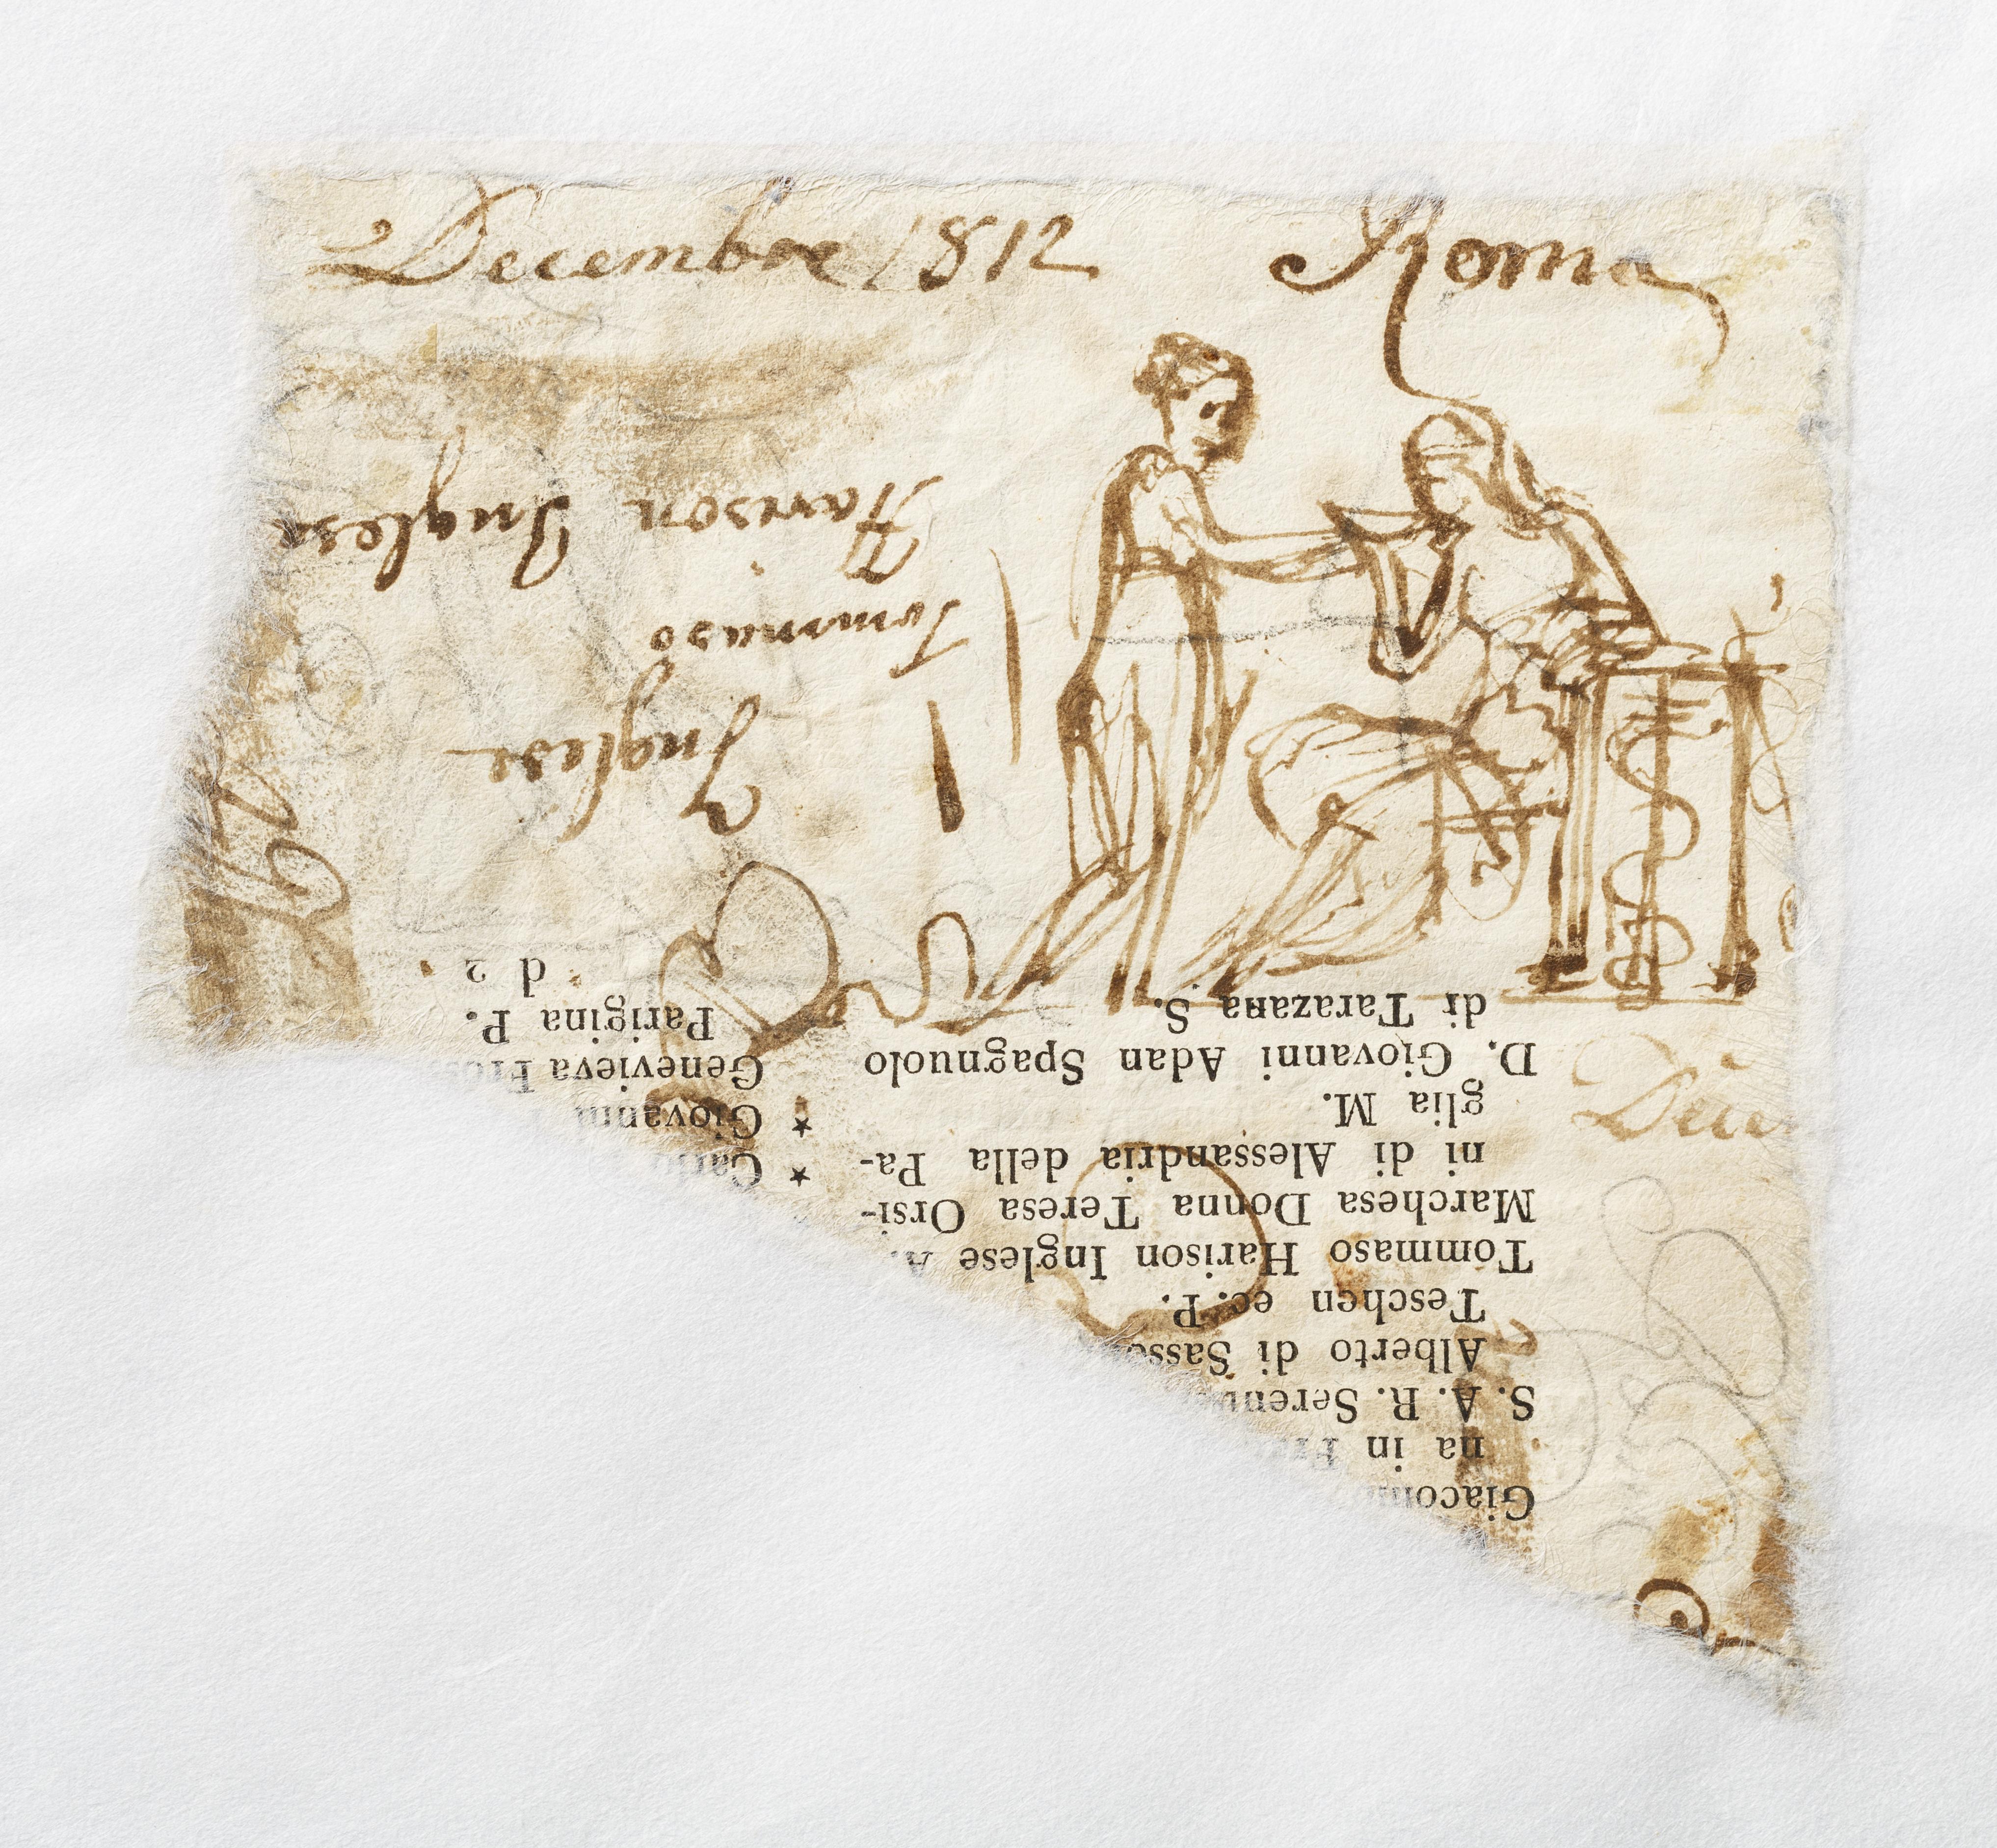 Decembre 1812 Roma
Inglese
Tommaso
Harison Inglese
Giacom
na in
S. A. R. Seren
Alberto di Sasso
Teschen ec. P.
Tommaso Harison Inglese A.
Marchesa Donna Teresa Orsi-
ni di Alessandria della Pa-
glia M.
D. Giovanni Adan Spagnuolo
di Tarazana S.
★
★ Giovanni
Genevieva
Parigina P.
d 2